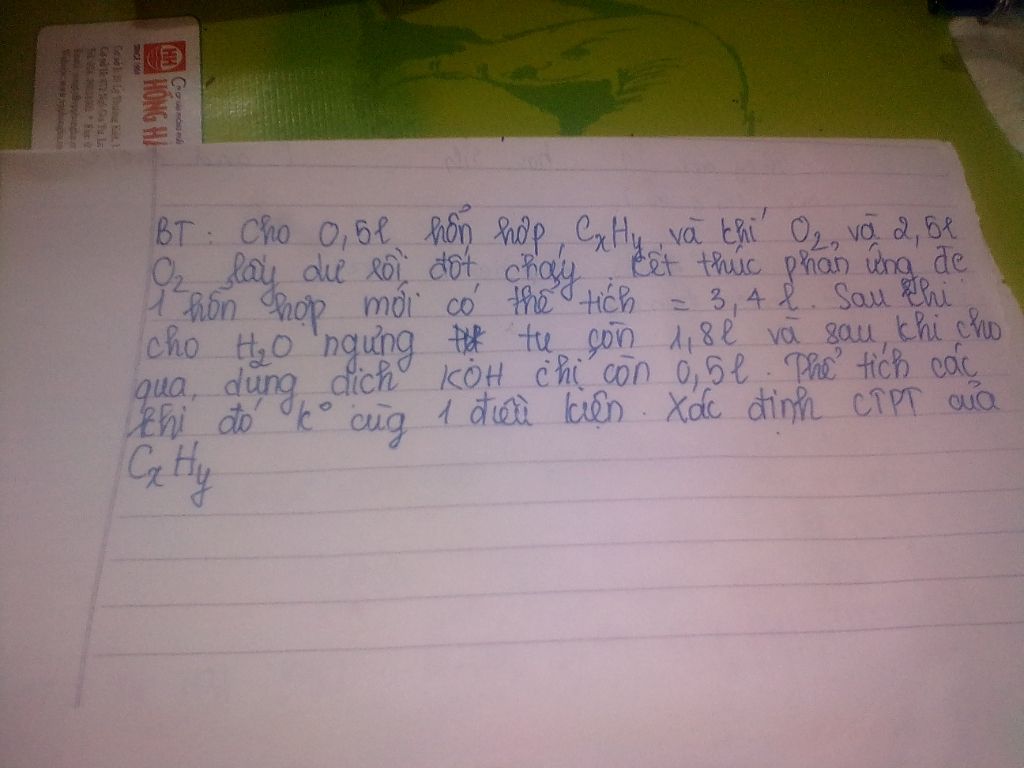 HỒNG HÀ
BT: Cho 0,5l hổn hợp CxHy và khí O2 và 2,5l
O2 lấy dư rồi đốt cháy. Kết thúc phản ứng để
1 hỗn hợp mới có thể tích = 3,4 l. Sau khi
cho H2O ngưng tụ còn 1,8l và sau khi cho
qua dung dịch KOH chỉ còn 0,5l. Thể tích các
khí đó k° cùg 1 điều kiện. Xác định CTPT của
CxHy